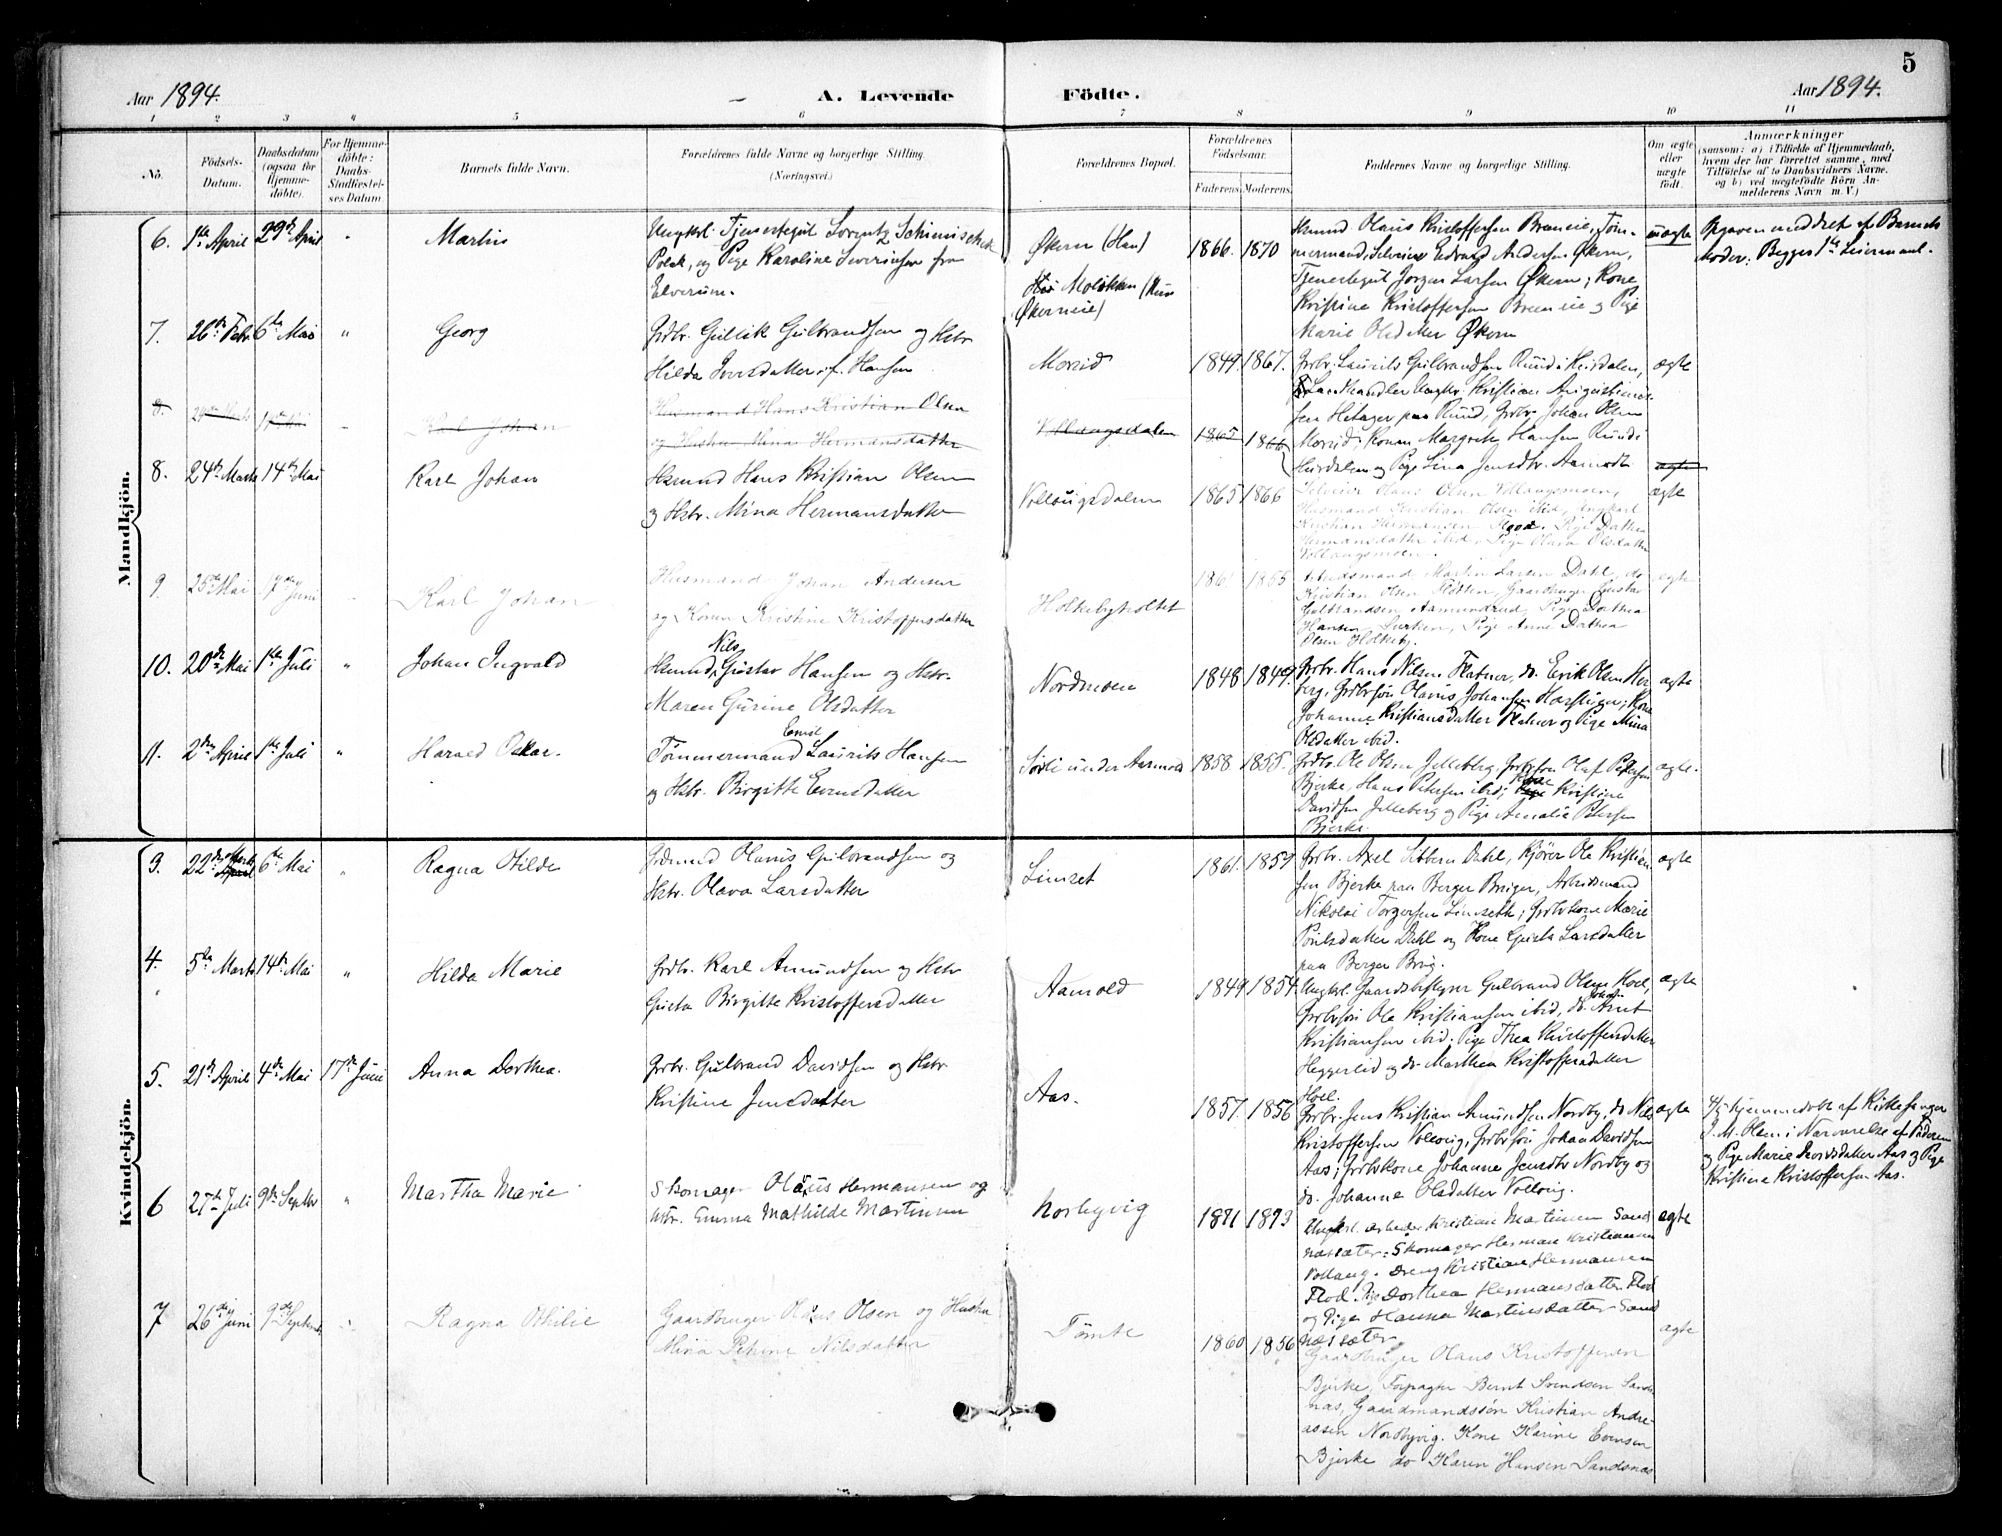 5
Aar 1894.
A. Levende Födte.
Aar 1894.
1 2 3 4 5 6 7 8 9 10 11
No.
Födsels-Datum.
Daabsdatum (ogsaa for Hjemme-döbte).
For Hjemme-döbte: Daabs-Stadfestel-ses Datum
Barnets fulde Navn.
Forældrenes fulde Navne og borgerlige Stilling. (Næringsvei.)
Forældrenes Bopæl.
Forældrenes Födselsaar.
Faderens. Moderens.
Faddernes Navne og borgerlige Stilling.
Om ægte eller uægte födt.
Anmærkninger
(saasom: a) i Tilfælde af Hjemmedaab,
hvem der har forrettet samme, med
Tilföielse af to Daabsvidners Navne,
og b) ved uægtefödte Börn An-
melderens Navn m. V.)
Mandkjön.
6. 1ste April 29de April " Martin
Ungkarl Tjenestegut Lorentz
Polak, og Pige Karoline Severinsen fra
Elverum.
Økern (Han)
Økerneie)
1866. 1870
Hsmund Olaus Kristoffersen Breneie, Töm-
mermand, Selveier Edvard Andersen Økern,
Tjenestegut Jörgen Larsen Økern; Kone
Kristine Kristoffersen Breneie og Pige
Marie Olsdatter Økern
uægte
Opgaven meddelt af Barnets
Moder; Begges 1ste Leiermaal.
7. 26de Febr. 6te Mai " Georg
Grdbr. Gulbrandsen og Hstr.
Hilda Iversdatter, f. Hansen
Morud
1849. 1867.
Grdbr. Laurits Gulbrandsen Ruud i Hurdalen,
Landhandler Ungkr. Kristian
sen paa Ruud, Grdbr. Johan Olsen
Morud; Konen Margrethe Hansen Ruud i
Hurdalen og Pige Lina Jensdtr. Aamodt
ægte
8. Karl Johan
Husmand Hans Kristian Olsen
og Hustru Mina Hermansdatter
Vollaugsdalen 1865 1866
ægte
8. 24de Marts 14de Mai Karl Johan
Hsmund Hans Kristian Olsen
og Hstr. Mina Hermansdatter
Vollaugsdalen
1865 1866
Selveier Hans Olsen Vollaugsmoen,
Husmand Kristian Olsen ibid, Ungkarl
Kristian Hermansen Flood. Pige Dorthea
Hermansdatter ibid, Pige Olava Olsdatter
Vollaugsmoen.
ægte
9. 25de Mai 17de Juni Karl Johan
Husmand Johan Andersen
og Konen Kristine Kristoffersdatter
Holkebyholtet
1861 1855
Arbeidsmand Martin Larsen Dahl, do
Kristian Olsen Gaardbruger Gustav
Gulbrandsen, Aamundrud, Pige Dorthea
Hansen Pige Anne Dorthea
Olsen Holkeby.
ægte
10. 20de Mai 1ste Juli " Johan Ingvald
Hsmund Nils Gustav Hansen og Hstr.
Maren Gurine Olsdatter
Nordmoen
1848 1849.
Grdbr. Hans Nilsen Flatner, do. Erik Olsen Her-
berg, Grdbrsön Olaus Johansen Kone
Johanne Kristiansdatter Flatner og Pige Mina
Olsdatter ibid.
ægte
11. 2den April 1ste Juli " Harald Oskar.
Tömmermand Emil Laurits Hansen
og Hstr. Birgitte Evensdatter
under Aamold
1858 1855.
Grdbr. Ole Olsen Jelleberg, Grdbrsön Olaf Pedersen
Bjerke, Hans Petersen ibid; Kone Kristine
Davidsen Jelleberg og Pige Amalie Petersen
Bjerke.
ægte.
Kvindekjön.
3. 22de Marts April 6te Mai " Ragna Otilde
Olaus Gulbrandsen og
Hstr. Olava Larsdatter
Linset
1861. 1859
Grdbr. Axel Sibbern Dahl, Kjörer Ole Kristian-
sen Bjerke paa Berger Brug, Arbeidsmand
Nikolai Torgersen Linseth; Grdbrkone Marie
Poulsdatter Dahl og Kone Gusta Larsdatter
paa Berger Brug.
ægte
4. 5te Marts 14de Mai " Hilda Marie
Grdbr. Karl Amundsen og Hstr.
Gusta Birgitte Kristoffersdatter
Aamold
1849 1854.
Ungkrl. Gaardsbestyrer Gulbrand Olsen Hoel,
Grdbrsön Ole Kristiansen ibid, do. Johan Arnt
Kristiansen ibid; Pige Thea Kristoffersdatter
Heggerlid og do. Marthea Kristoffersdatter
Hoel.
ægte
5. 21de April 4de Mai 17de Juni Anna Dorthea.
Grdbr. Gulbrand Davidsen og Hstr.
Kristine Jensdatter
Aas.
1857. 1856
Grdbr. Jens Kristian Amundsen Nordby, do Nils
Kristoffersen Vollaug, Grdbrsön Johan Davidsen
Aas; Grdbrkone Johanne Jensdtr Nordby og
do. Johanne Olsdatter Vollaug.
ægte
4/5 hjemmedöbt af Kirkesanger
J. M. Olsen i Nærværelse af Faderen
og Pige Marie Davidsdatter Aas og Pige
Kristine Kristoffersen Aas.
6 27de Juli 9de Septbr " Martha Marie
Skomager Olaus Hermansen og
Hstr. Emma Mathilde Martinsen
Norbyvig
1871 1873
Ungkrl. arbeider Kristian Martinsen Sand-
næseter. Skomager Herman Kristiansen
Vollaug. Dreng Kristian Hermansen
Flod Pige Dorthea Hermansdatter Flod
og Pige Hanna Martinsdatter Sand
næseter
ægte
7 26de Juni 9de Septemb. Ragna Othilie
Gaardbruger Olaus Olsen og Hustru
Mina Petrine Nilsdatter
Tömte
1860 1856
Gaardbruger Olaus Kristoffersen
Bjerke, Forpagter Bernt Svendsen Sands-
næs, Gaardmandssön Kristian Andre-
assen Nordbyvig. Kone Karine Evensen
Bjerke do Karen Hansen Sandsnæs
ægte